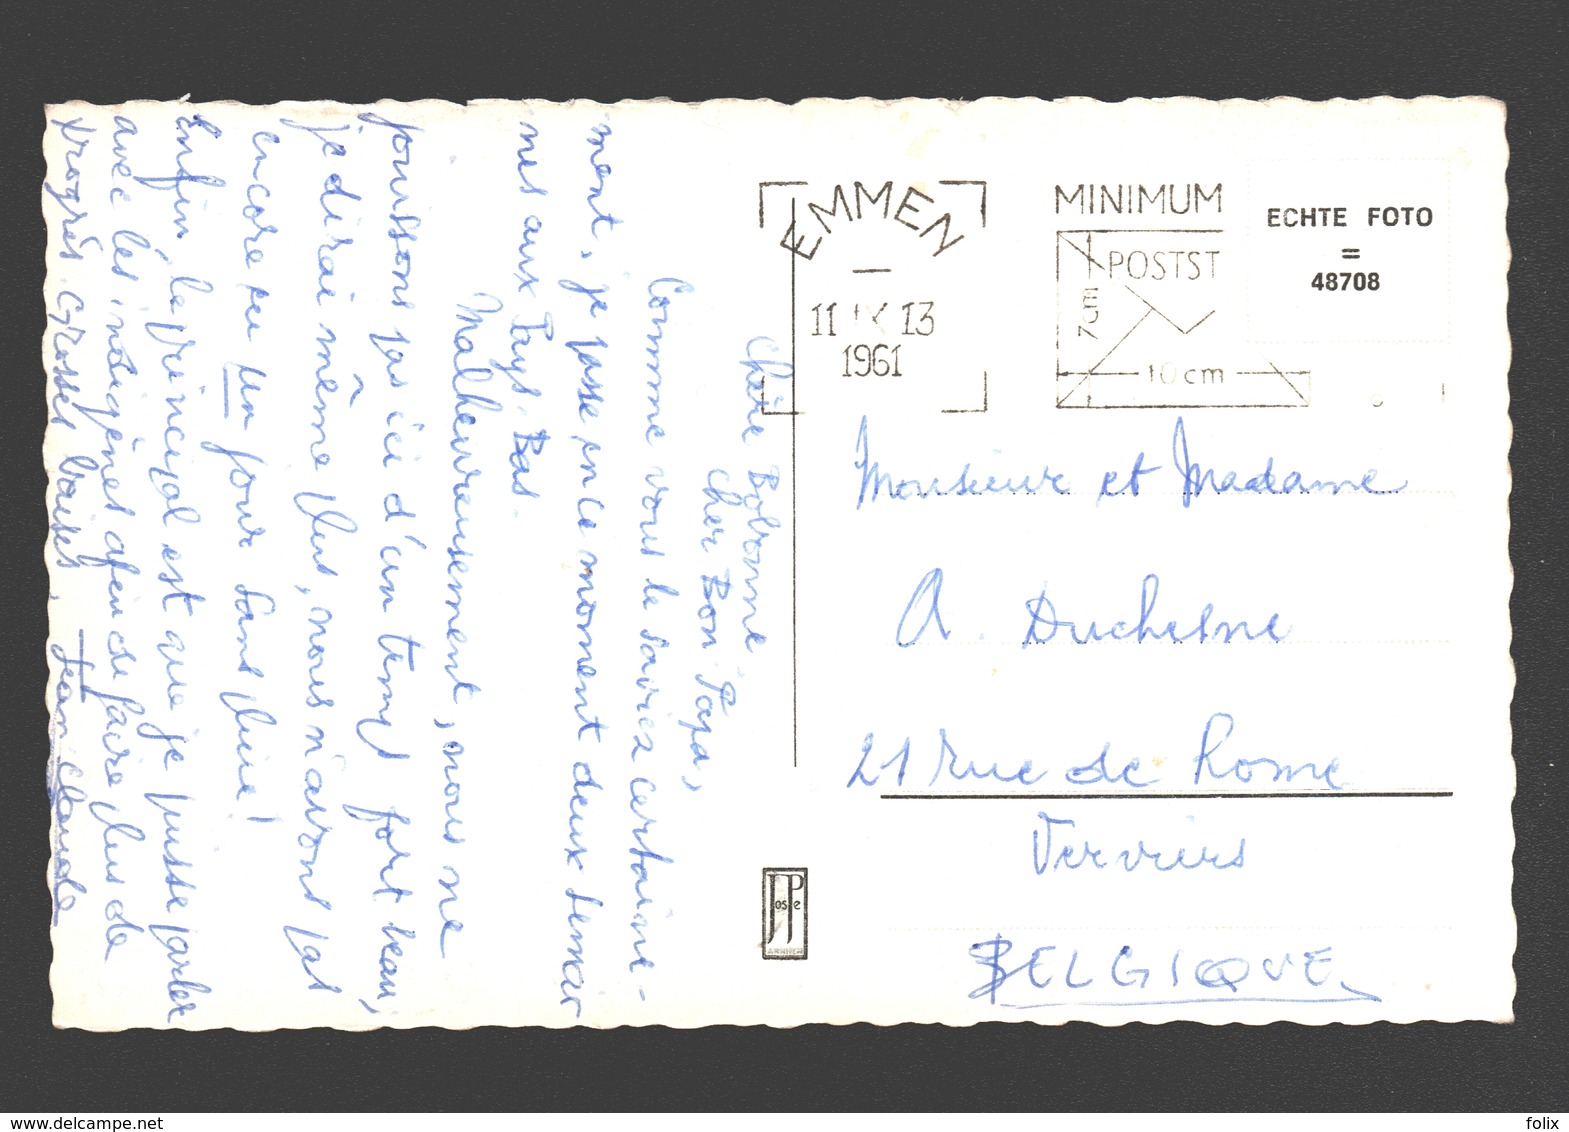 Chère Bobonne,
Cher Bon Papa,
Comme vous le saviez certaine-
ment, je passe en ce moment deux semai
nes aux Pays-Bas.
Malheureusement, nous ne
jouissons pas ici d'un temps fort beau,
je dirai même plus, nous n'avons pas
encore eu un jour sans pluie!
Enfin, le principal est que je puisse parler
avec les indigènes afin de faire plus de
progrès. Grosses baises, Jean-Claude
EMMEN
11 IX 13
1961
MINIMUM
POSTST
7cm
10 cm
ECHTE FOTO
=
48708
Monsieur et Madame
A. Duchesne
21 rue de Rome
Verviers
BELGIQUE
JosPe
ARNHEM
delcampe.net
folix